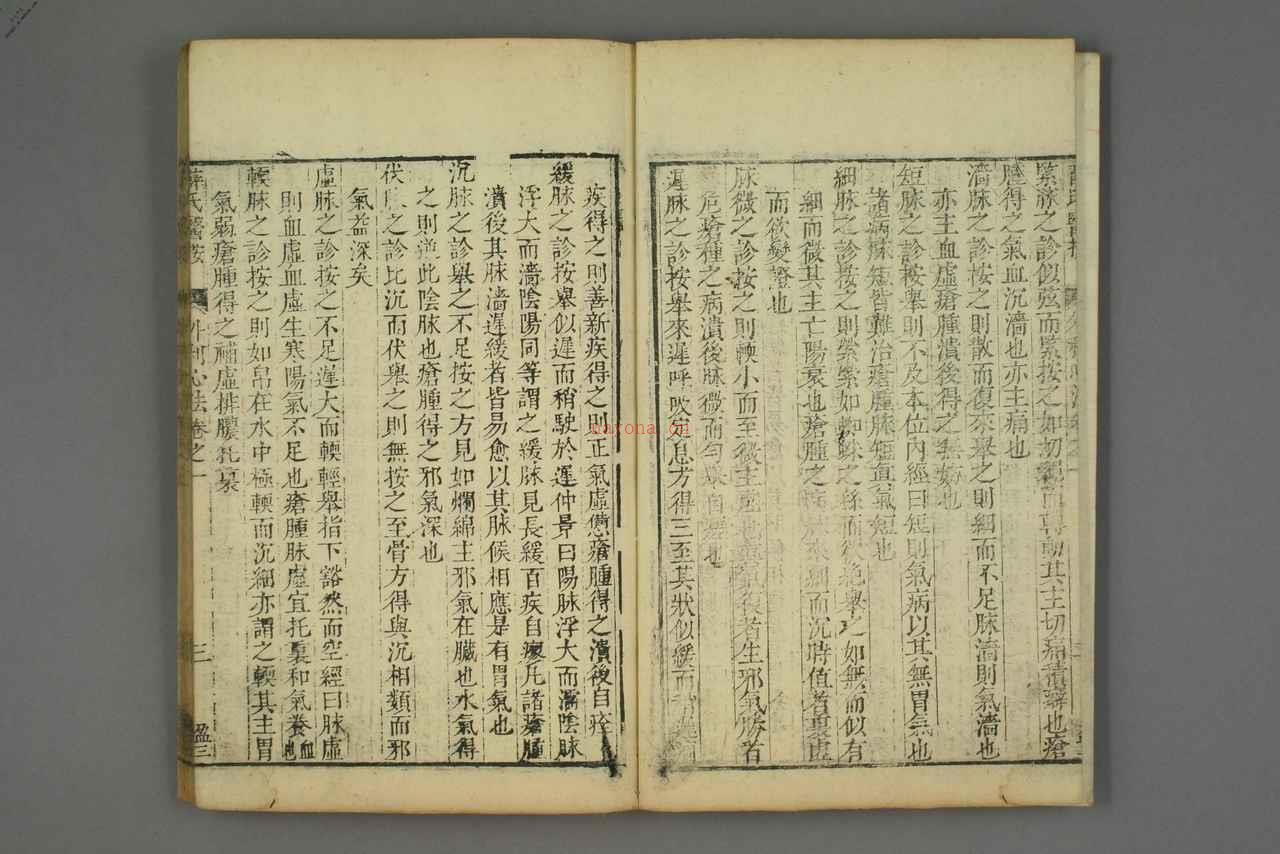 緊脉之診似弦而緊按之如切繩而轉動其主切痛積癖也瘡
腫得之氣血沉濇也亦主痛也
濇脉之診按之則散而復來舉之則細而不足脉濇則氣濇也
亦主血虛瘡腫潰後得之無妨也
短脉之診按舉則不及本位內經曰短則氣病以其無胃氣也
諸病脉短皆難治瘡腫脉短眞氣短也
細脉之診按之則縈縈如蜘蛛之絲而欲絶舉之如無而似有
細而微其主亡陽衰也瘡腫之病脉來細而沉時值者裏虛
而欲變證也
脉微之診按之則輭小而至微主虛也眞氣復者生邪氣勝者
危瘡種之病潰後脉微而勻自也
遲脉之診按舉來遲呼吸定息方得三至其狀似緩而
疾得之則善新疾得之則正氣虛憊瘡腫得之潰後自痊
緩脉之診按舉似遲而稍駛於遲仲景曰陽脉浮大而濡陰脉
浮大而濡陰陽同等謂之緩脉見長緩百疾自瘳凡諸瘡腫
潰後其脉濇遲緩者皆易愈以其脉候相應是有胃氣也
沉脉之診舉之不足按之方見如爛綿主邪氣在臟也水氣得
之則逆此陰脉也瘡腫得之邪氣深也
伏脉之診比沉而伏舉之則無按之至骨方得與沉相類而邪
氣益深矣
虛脉之診按之不足遲大而輭輕舉指下豁然而空經曰脉虛
則血虛血虛生寒陽氣不足也瘡腫脉虛宜托裏和氣養血也
輭脉之診按之則如帛在水中極輭而沉細亦謂之輭其主胃
氣弱瘡腫得之補虛排膿托裏
薛氏醫按 外科心法卷之一 三 盈三
nayona.cn